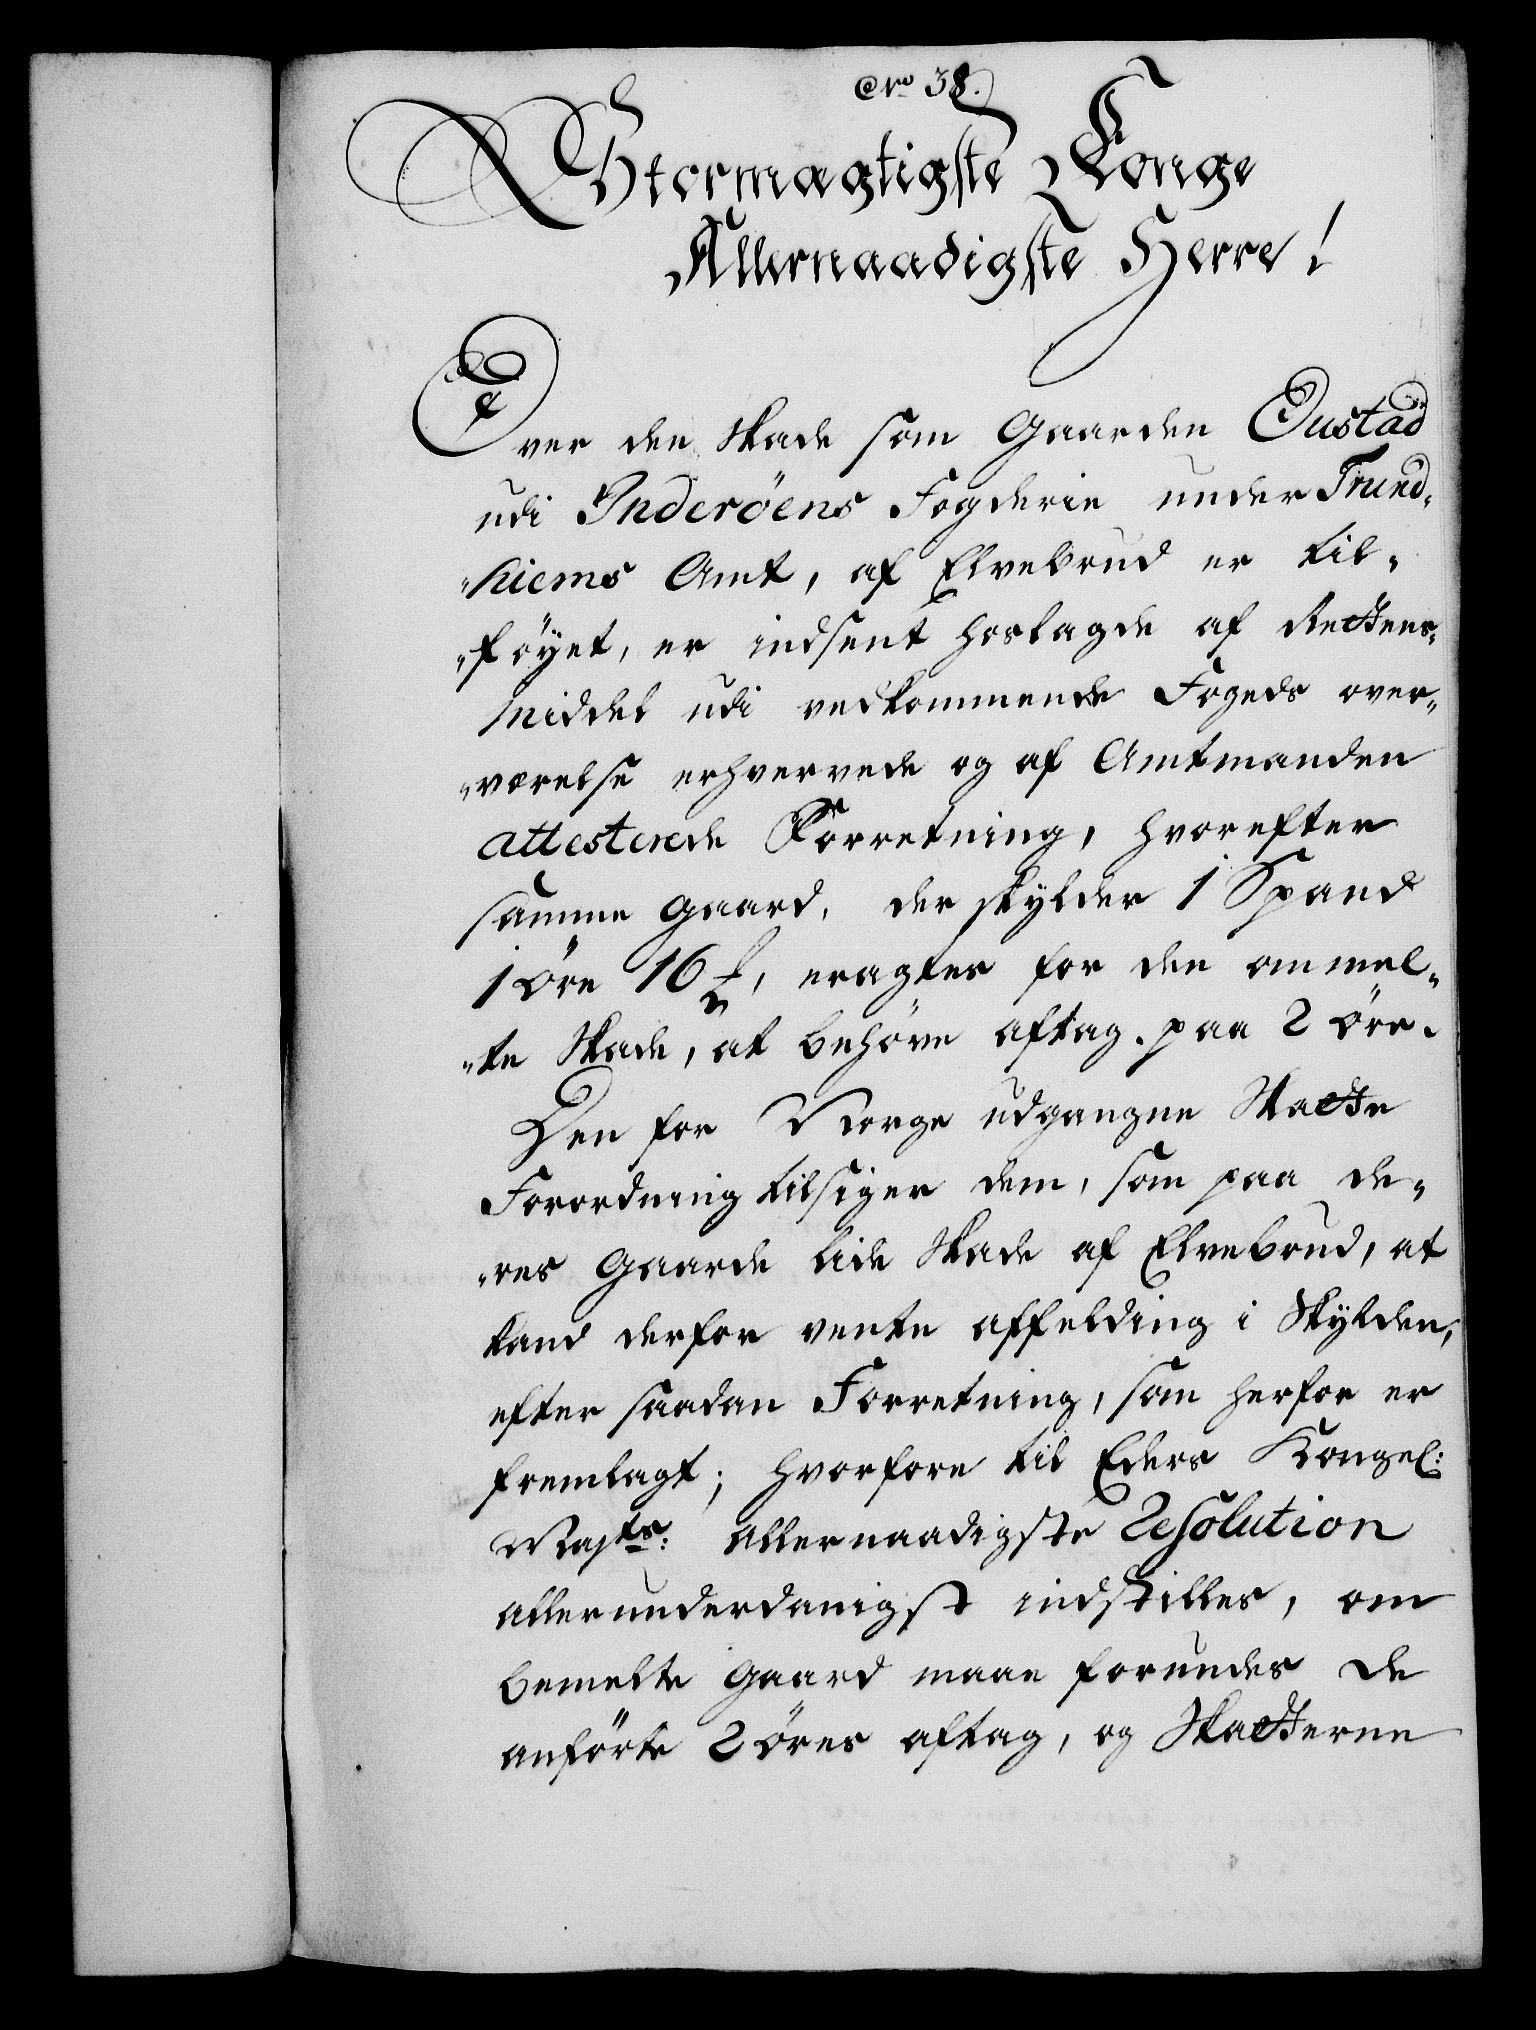 No 38.
Stormægtigste Konge
Allernaadigste Herre!
Over den Skade som Gaarden Oustad
udi Inderöens Fogderie under Trund-
"hiems Amt, af Elvebrud er til-
"föyet, er indsent hoslagde af Rettens-
Middel udi vedkommende Fogeds over-
"værelse erhvervede og af Amtmanden
attesterede Forretning, hvorefter
samme Gaard, der skylder 1 Spand
1 Öre 16 ₤, eragtes for den ommel-
"te Skade, at behöve aftag paa 2 öre.
Den for Norge udgangne Skatte
Forordning tilsiger dem, som paa de-
"res Gaarde lide Skade af Elvebrud, at
kand derfor vente affelding i Skylden,
efter saadan Forretning, som herfor er
fremlagt; hvorfore til Eders Kongel:
Majts: allernaadigste Resolution
allerunderdanigst indstilles, om
bemelte Gaard maae forundes de
anförte 2 öres aftag, og Skatterne